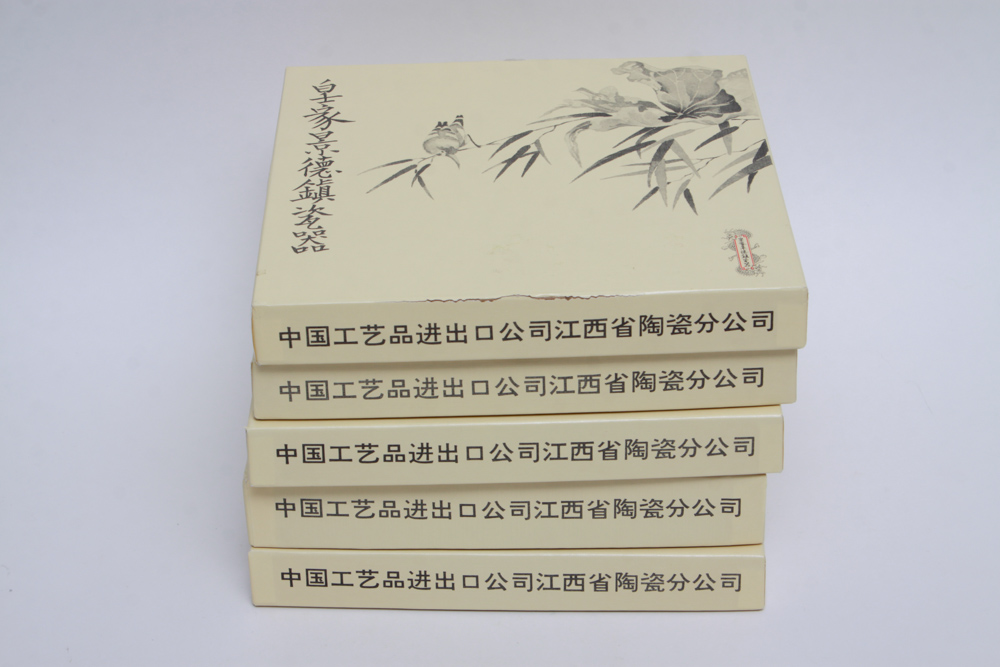 皇士家景德鎮瓷器
中国工艺品进出口公司江西省陶瓷分公司
中国工艺品进出口公司江西省陶瓷分公司
中国工艺品进出口公司江西省陶瓷分公司
中国工艺品进出口公司江西省陶瓷分公司
中国工艺品进出口公司江西省陶瓷分公司